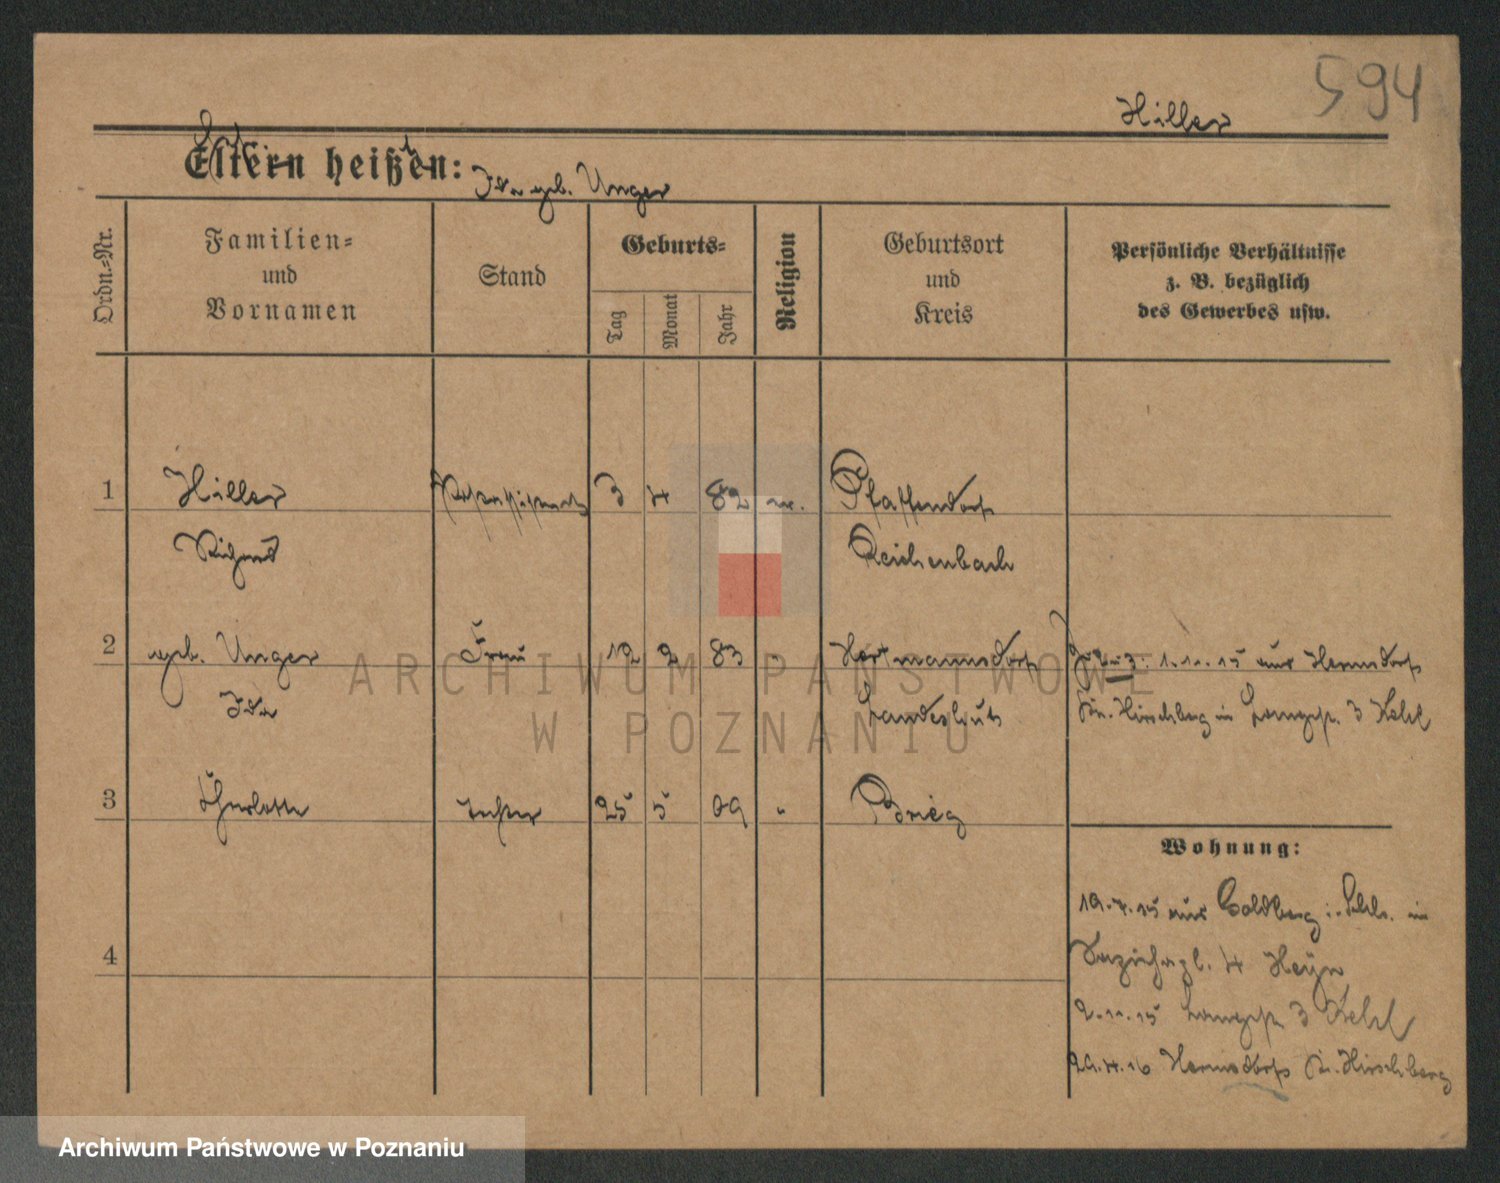 594
Hiller
Eltern heißen:
Ida geb. Unger
Ordn.-Nr.
Familien-
und
Vornamen
Stand
Geburts-
Tag
Monat
Jahr
Religion
Geburtsort
und
Kreis
Persönliche Verhältnisse
z. B. bezüglich
des Gewerbes usw.
1 Hiller 3 4 82 Pfaffendorf
Richard Reichenbach
2 geb. Unger Frau 12 2 83 " Hartmannsdorf
Ida Landeshut
1.11.15 aus Hermsdorf
Kr. Hirschberg in Langestr. 3
3 Charlotte Tochter 25 5 09 " Brieg
Wohnung:
19.4.15 aus Goldberg i. Schls. in
4
4 Heyn
2.11.15 Langestr. 3
29.4.16 Hermsdorf Kr. Hirschberg
ARCHIWUM PAŃSTWOWE
W POZNANIU
Archiwum Państwowe w Poznaniu